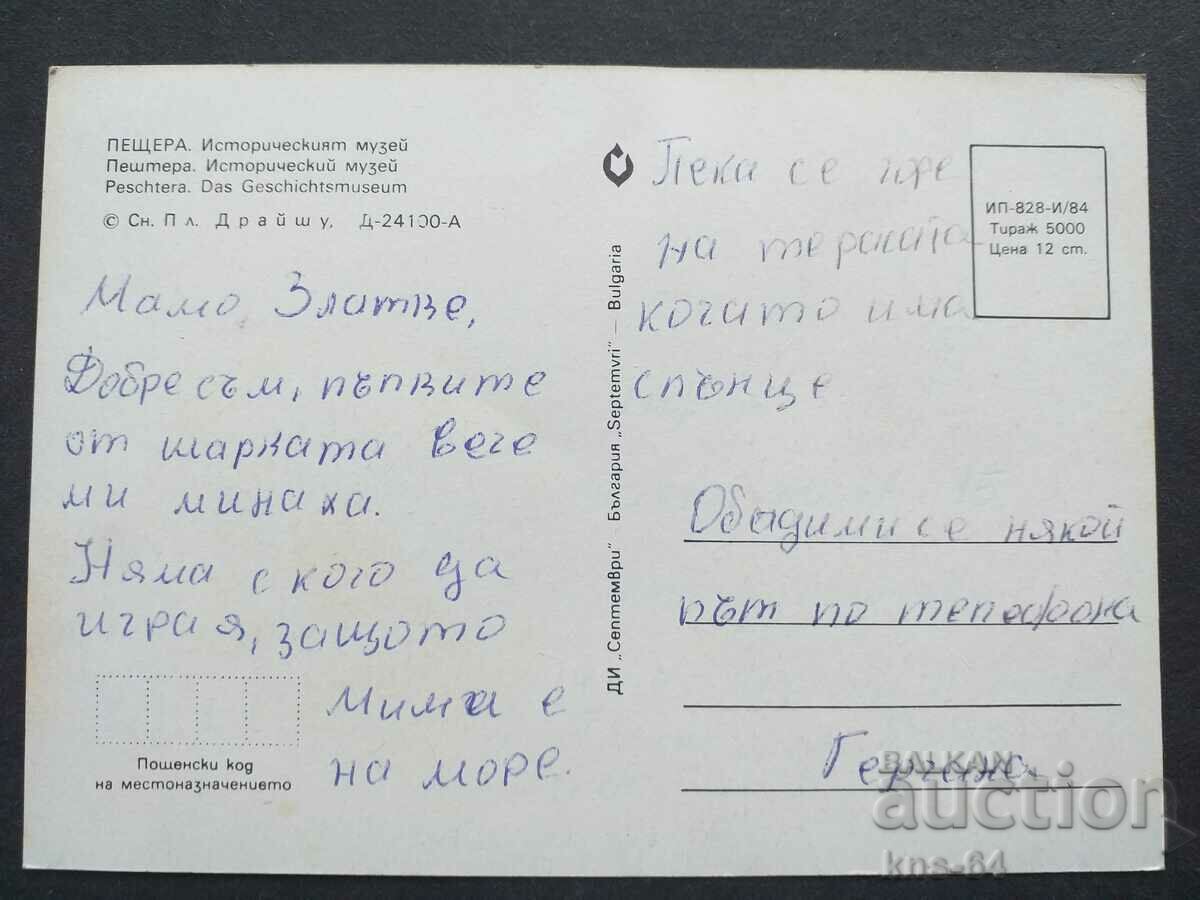 ПЕЩЕРА. Историческият музей
Пештера. Исторический музей
Peschtera. Das Geschichtsmuseum
© Сн. Пл. Драйшу, Д-24100-А
Мамо Златке,
Добре съм, пъпките
от шарката вече
ми минаха.
Няма с кого да
играя, защото
Мима е
на море.
Пощенски код
на местоназначението
ДИ „Септември" България „Septemvri" — Bulgaria
Пека се
на терасата
когато има
слънце
ИП-828-И/84
Тираж 5000
Цена 12 ст.
Обадими се някой
път по телефона
Гергана
BALKAN
auction
kns-64